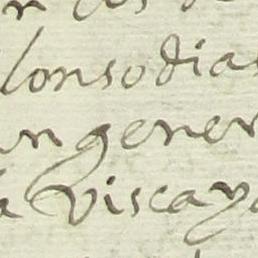 lonsodia
ungener
a viscaya